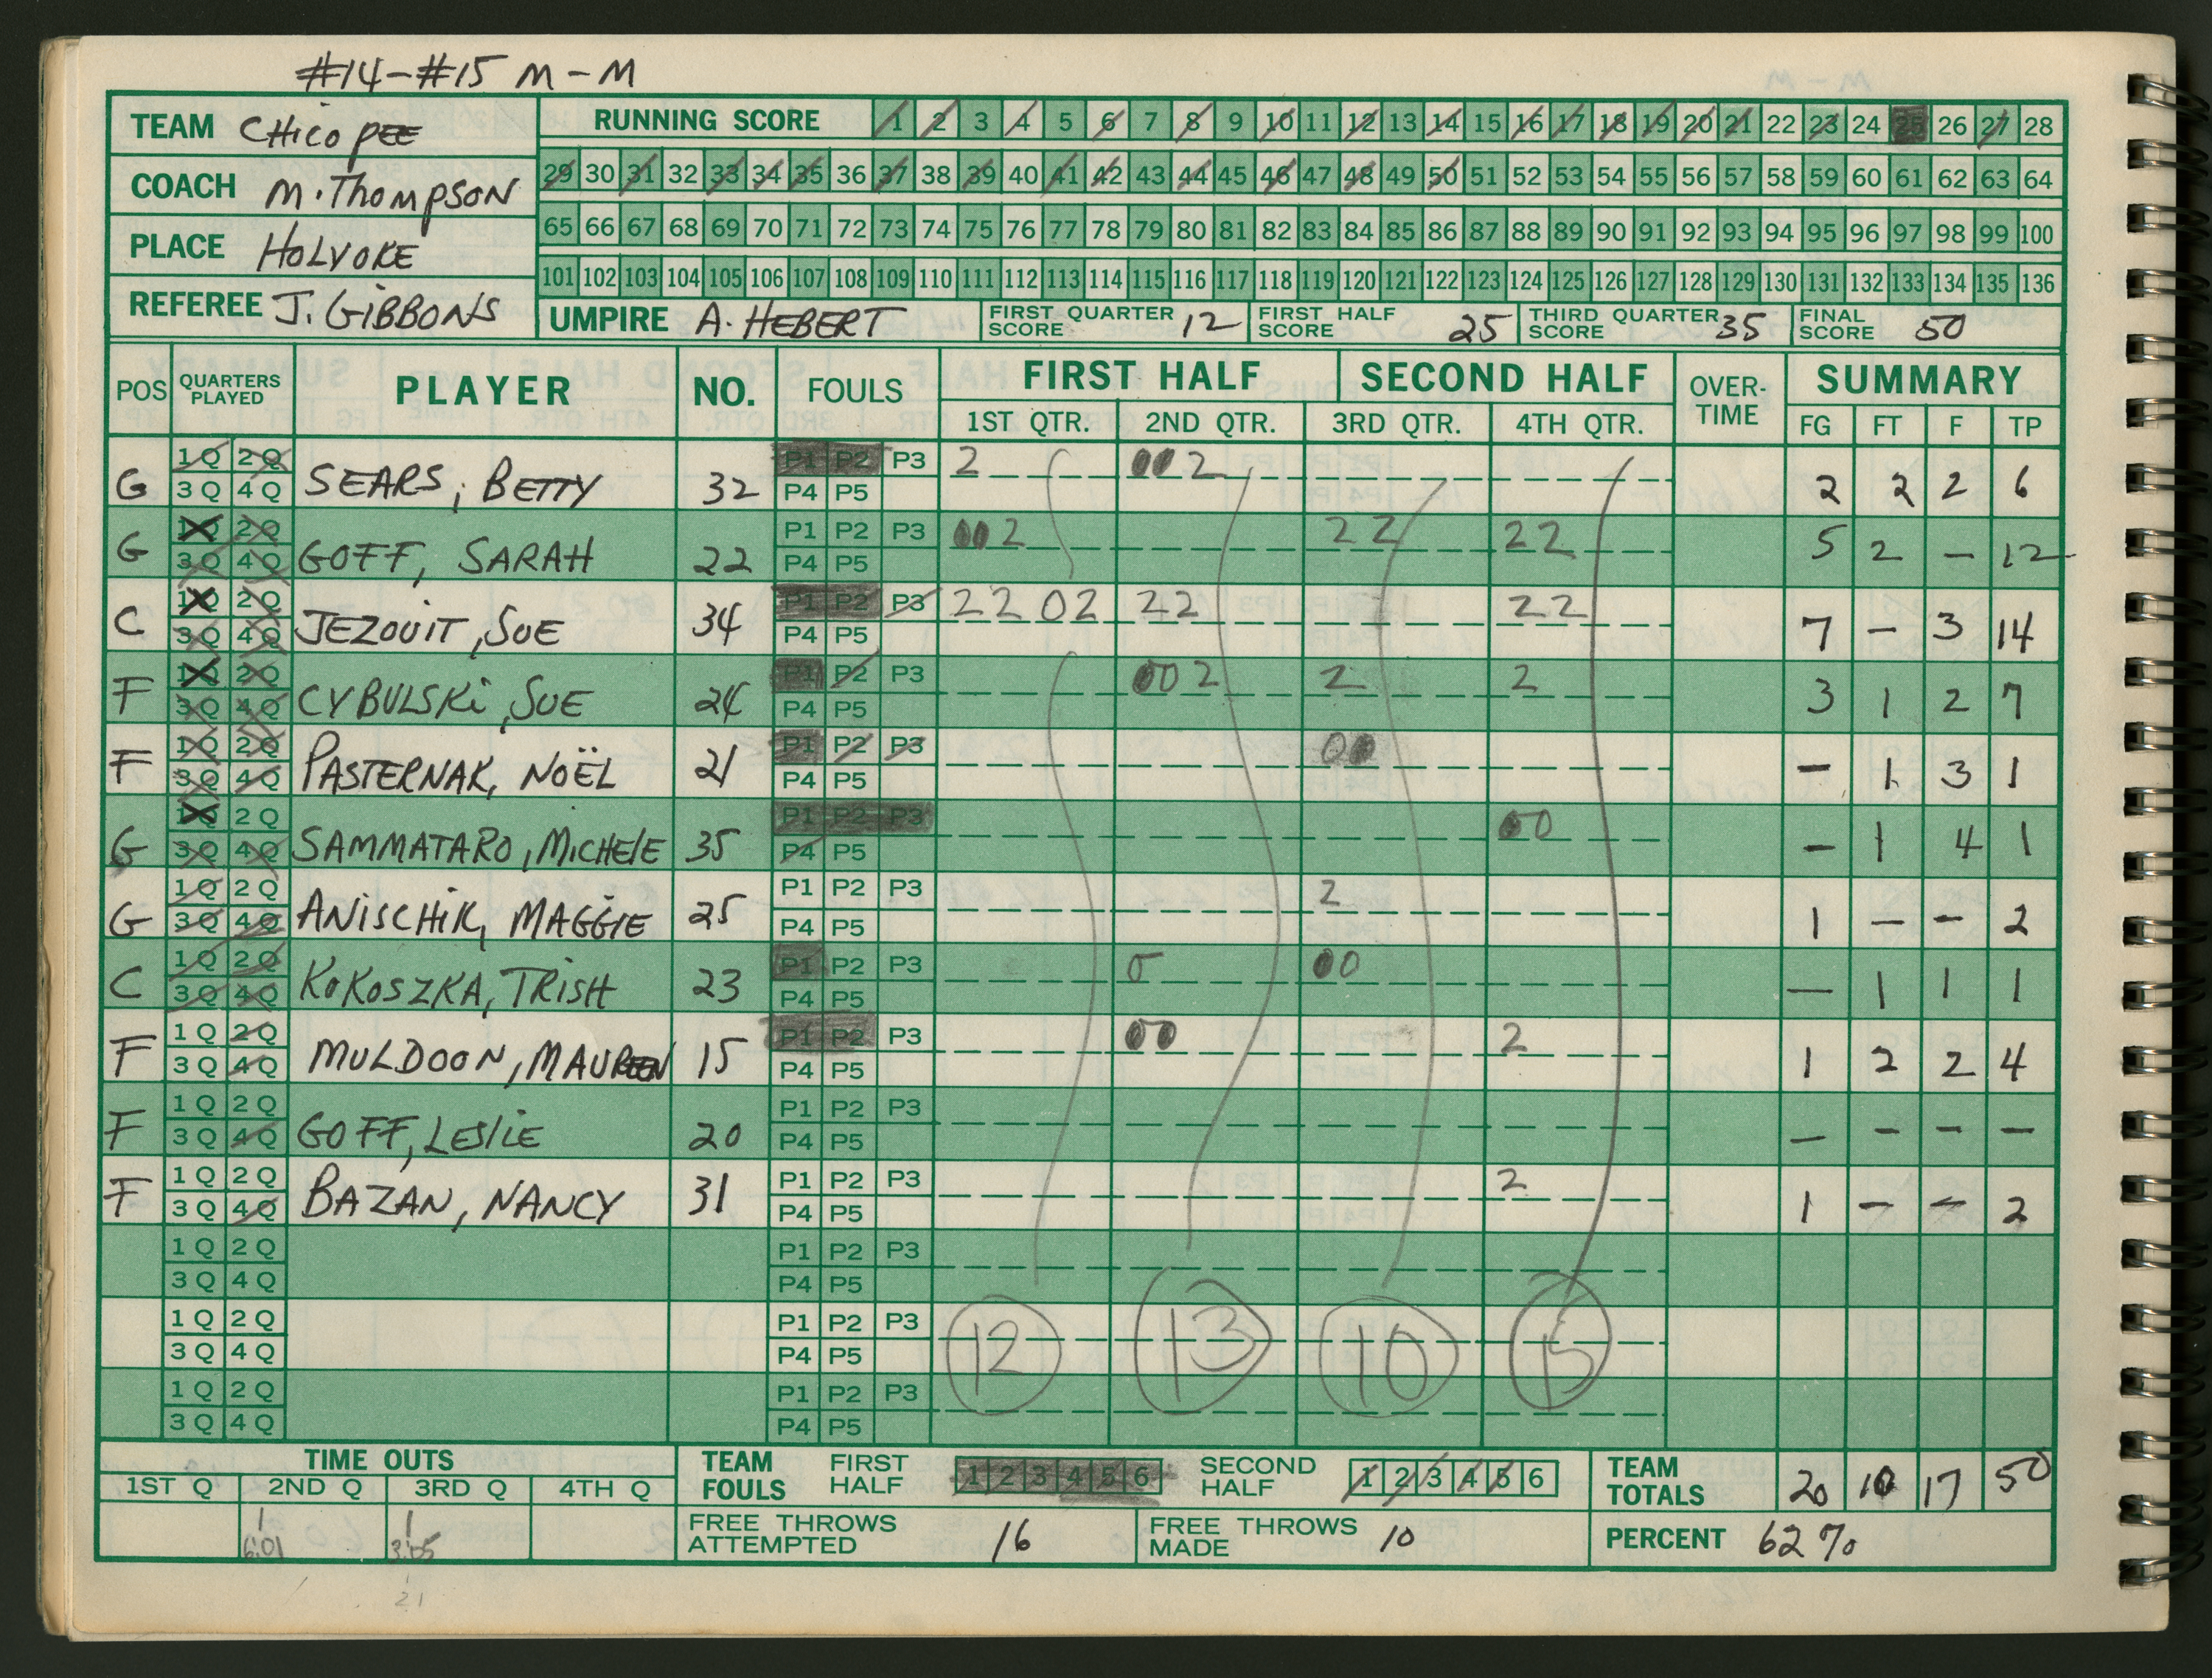 #14-#15 M-M
TEAM CHicoPEE
COACH M. THomPSON
PLACE HOLYOKE
REFEREE J. GiBBONS
RUNNING SCORE 1 2 3 4 5 6 7 8 9 10 11 12 13 14 15 16 17 18 19 20 21 22 23 24 25 26 27 28
29 30 31 32 33 34 35 36 37 38 39 40 41 42 43 44 45 46 47 48 49 50 51 52 53 54 55 56 57 58 59 60 61 62 63 64
65 66 67 68 69 70 71 72 73 74 75 76 77 78 79 80 81 82 83 84 85 86 87 88 89 90 91 92 93 94 95 96 97 98 99 100
101 102 103 104 105 106 107 108 109 110 111 112 113 114 115 116 117 118 119 120 121 122 123 124 125 126 127 128 129 130 131 132 133 134 135 136
UMPIRE A. HEBERT FIRST QUARTER SCORE 12 FIRST HALF SCORE 25 THIRD QUARTER SCORE 35 FINAL SCORE 50
POS QUARTERS PLAYED PLAYER NO. FOULS FIRST HALF SECOND HALF OVER-TIME SUMMARY
1ST QTR. 2ND QTR. 3RD QTR. 4TH QTR. FG FT F TP
G 1Q 2Q 3Q 4Q SEARS, BETTY 32 P1 P2 P3 P4 P5 2 00 2 2 2 2 6
G 1Q 2Q 3Q 4Q GOFF, SARAH 22 P1 P2 P3 P4 P5 00 2 22 22 5 2 - 12
C 1Q 2Q 3Q 4Q JEZOUIT, SUE 34 P1 P2 P3 P4 P5 22 02 22 22 7 - 3 14
F 1Q 2Q 3Q 4Q CYBULSKi, SUE 24 P1 P2 P3 P4 P5 00 2 2 2 3 1 2 7
F 1Q 2Q 3Q 4Q PASTERNAK, NOËL 21 P1 P2 P3 P4 P5 00 - 1 3 1
G 1Q 2Q 3Q 4Q SAMMATARO, MiCHElE 35 P1 P2 P3 P4 P5 00 - 1 4 1
G 1Q 2Q 3Q 4Q ANiSCHiK, MAGGiE 25 P1 P2 P3 P4 P5 2 1 - - 2
C 1Q 2Q 3Q 4Q KoKOSZKA, TRiSH 23 P1 P2 P3 P4 P5 0 00 - 1 1 1
F 1Q 2Q 3Q 4Q MULDOON, MAUREEN 15 P1 P2 P3 P4 P5 00 2 1 2 2 4
F 1Q 2Q 3Q 4Q GOFF, LESliE 20 P1 P2 P3 P4 P5 - - - -
F 1Q 2Q 3Q 4Q BAZAN, NANCY 31 P1 P2 P3 P4 P5 2 1 - - 2
1Q 2Q 3Q 4Q P1 P2 P3 P4 P5
1Q 2Q 3Q 4Q P1 P2 P3 P4 P5 12 13 10 15
1Q 2Q 3Q 4Q P1 P2 P3 P4 P5
TIME OUTS
1ST Q 2ND Q 3RD Q 4TH Q
1 1
6:01 3:05
21
TEAM FOULS FIRST HALF 1 2 3 4 5 6 SECOND HALF 1 2 3 4 5 6 TEAM TOTALS 20 10 17 50
FREE THROWS ATTEMPTED 16 FREE THROWS MADE 10 PERCENT 62%